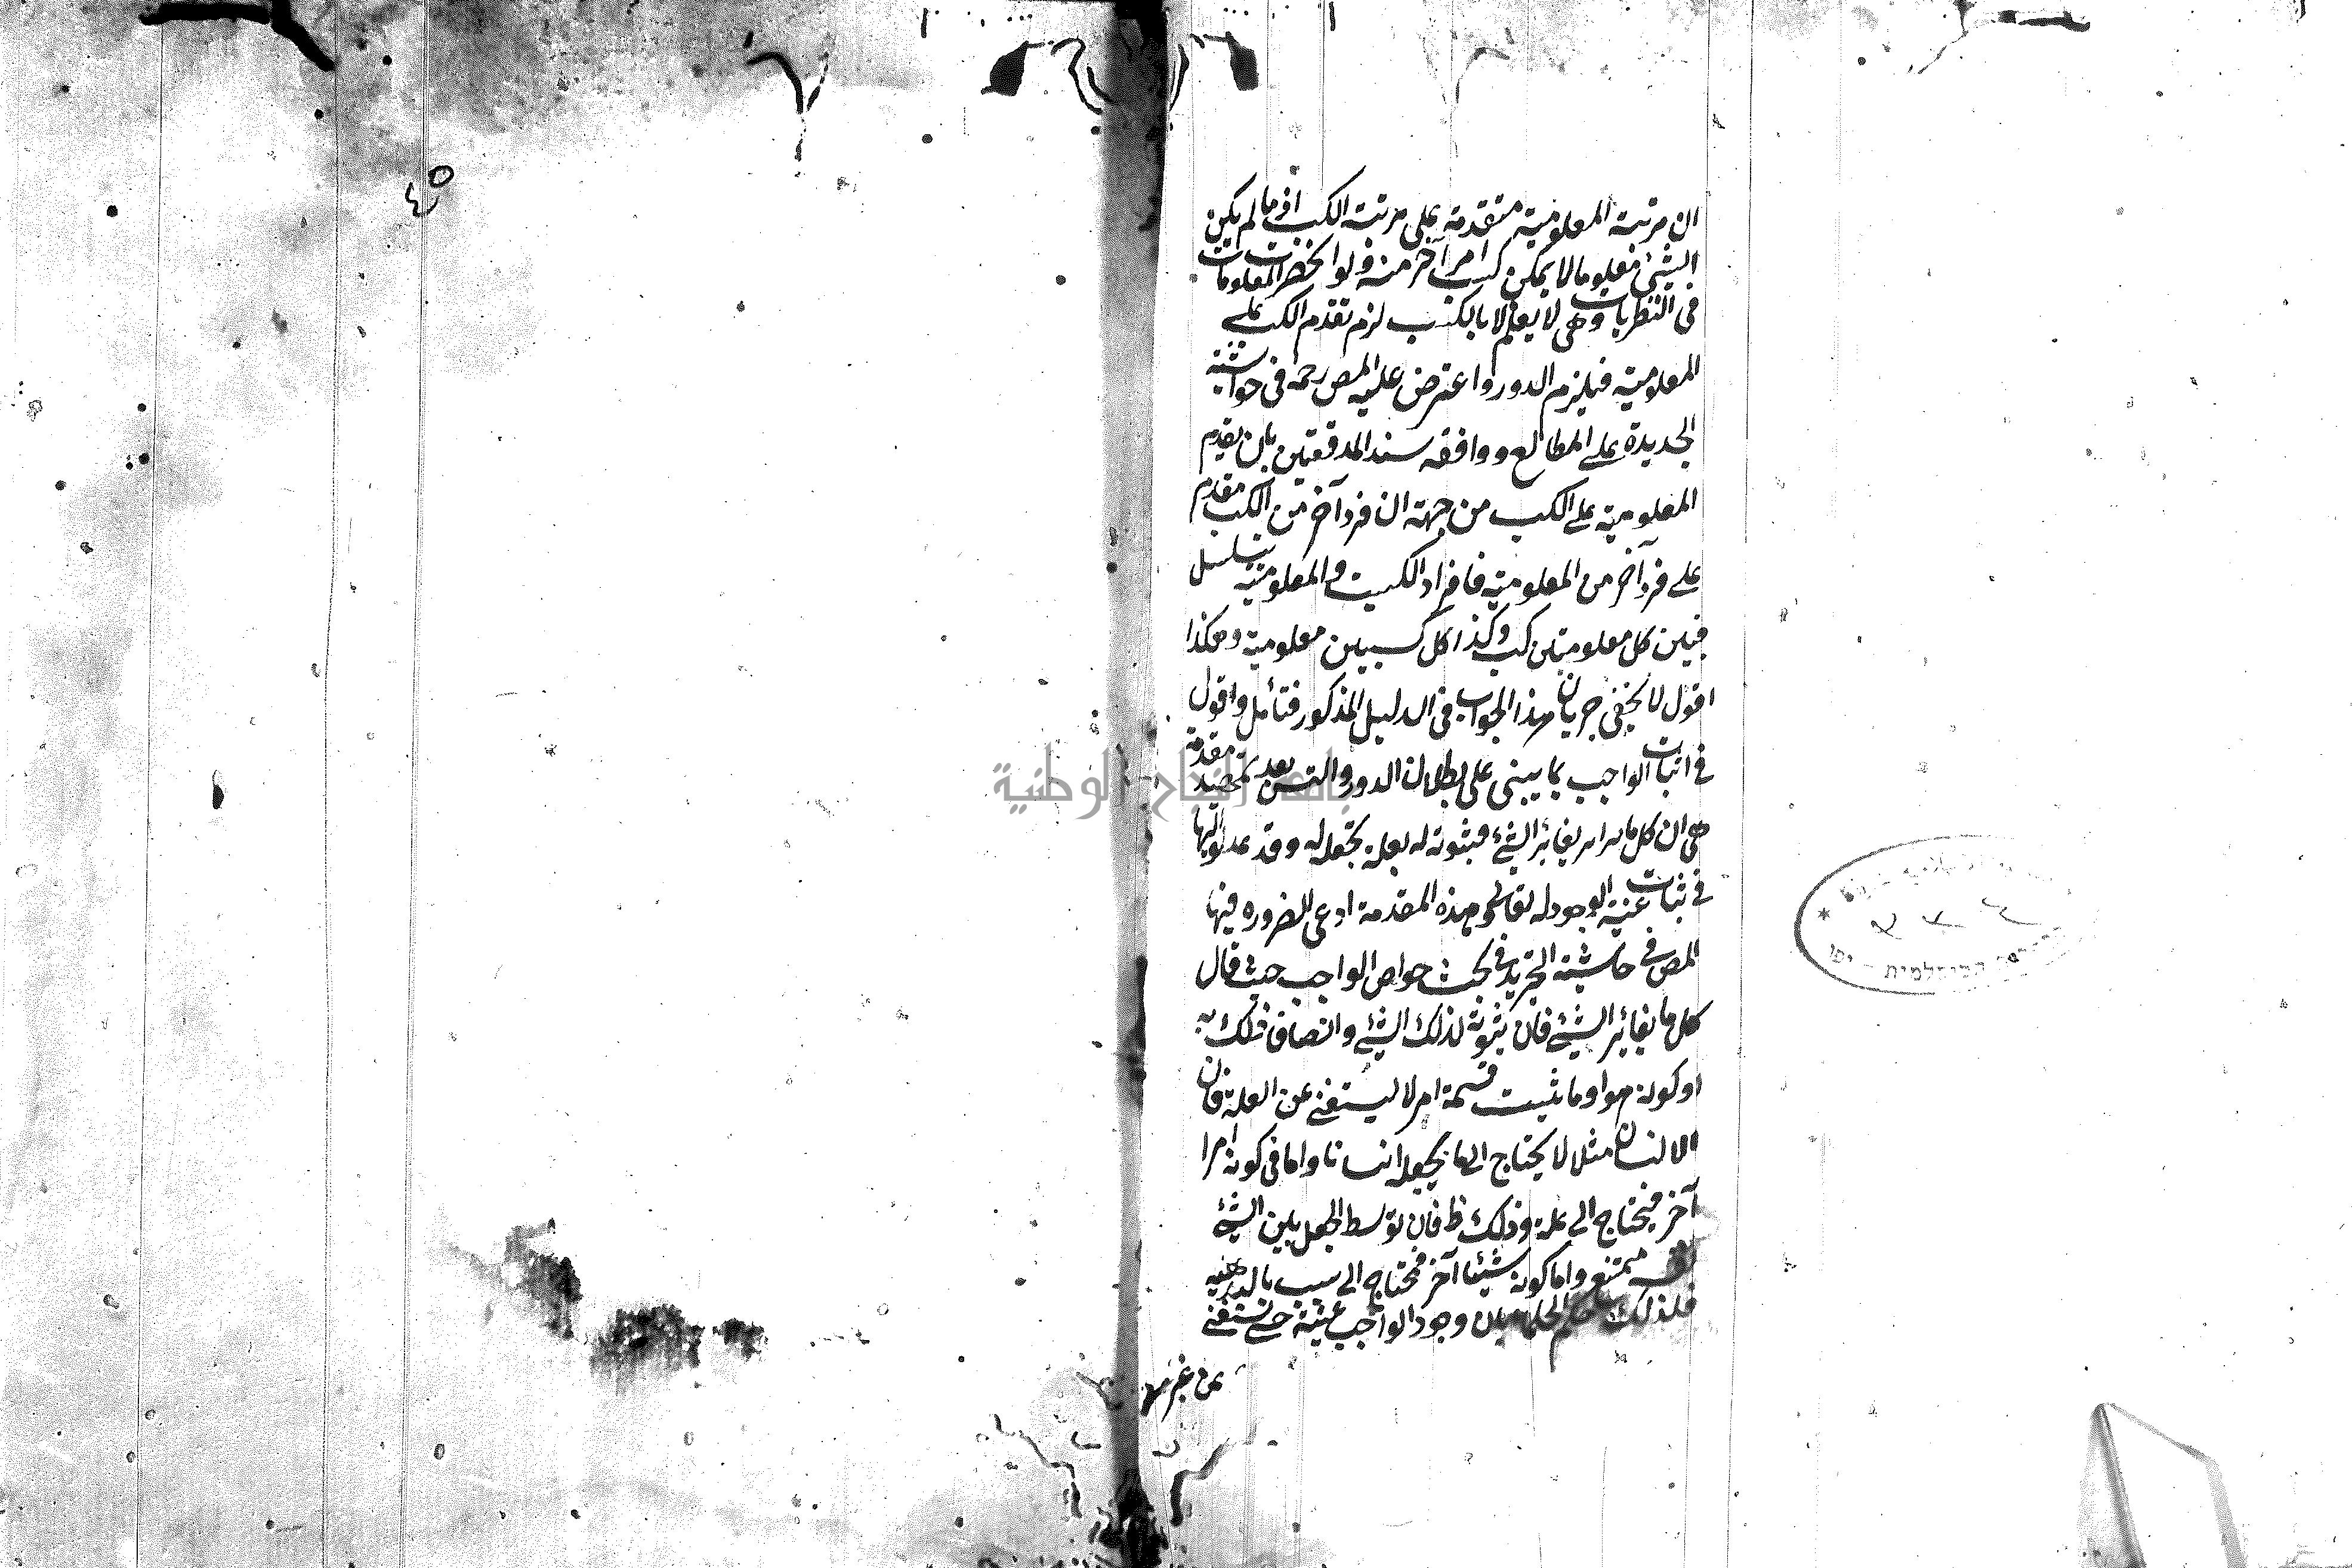 ان مرتبة المعلومية متقدمة على مرتبة الكسب اذ ما لم يكن
الشئ معلوما لا يمكن كسب امر آخر منه ولو انحصرت المعلومات
فى النظريات وهى لا يعلم الا بالكسب لزم تقدم الكسب على
المعلومية فيلزم الدور واعترض عليه المص رحمه فى حواشيه
الجديدة على المطالع ووافقه سند المدققين بان تقدم
المعلومية على الكسب من جهة ان فردا آخر من الكسب مقدم
على فرد آخر من المعلومية فافراد الكسب والمعلومية يتسلسل
فبين كل معلوميتين كسب وكذا كل كسبين معلومية وهكذا
اقول لا يخفى جريان هذا الجواب فى الدليل المذكور فتأمل واقول
فى اثبات الواجب بما يبنى على بطلان الدور والتس بعد تمهيد مقدمة
هى ان كل ما يغائر الشئ فثبوته له بعلة تجعله له وقد
فى اثبات عينية الوجود له تعالى وهذه المقدمة ادعى الضرورة فيها
المص فى حاشية التجريد فى بحث خواص الواجب حيث قال
كل ما يغائر الشئ فان ثبوته لذلك الشئ واتصاف ذلك به
او كونه هو او ما شئت فسمه امر لا يستغنى عن العلة فان
الانسان مثلا لا يحتاج الى ما يجعله انسانا واما فى كونه امرا
آخر فيحتاج الى علة وذلك ظ فان توسط الجعل بين الشئ
ونفسه ممتنع واما كونه شيئا آخر فمحتاج الى سبب بالبديهة
فلذلك حكم الحكماء بان وجود الواجب عينه حتى يستغنى
عن غيره
٤٥
جامعة النجاح الوطنية